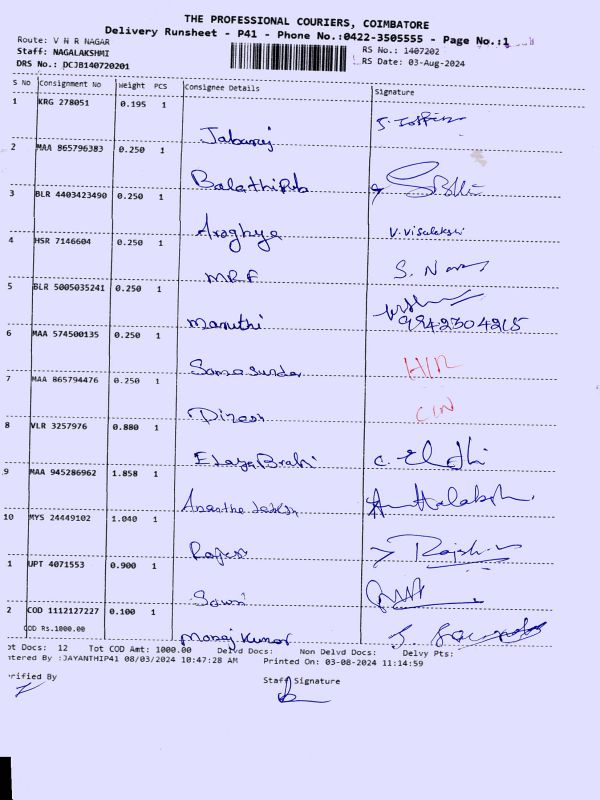 THE PROFESSIONAL COURIERS, COIMBATORE
Delivery Runsheet - P41 - Phone No.:0422-3505555 - Page No.:1
Route: V N R NAGAR
RS No.: 1407202
Staff: NAGALAKSHMI
RS Date: 03-Aug-2024
DRS No.: DCJB140720201
S No Consignment No Weight PCS Consignee Details Signature
1 KRG 278051 0.195 1
Jabaraj
2 MAA 865796383 0.250 1
3 BLR 4403423490 0.250 1
Araghya V. Visalakshi
4 HSR 7146604 0.250 1
MRF S.
5 BLR 5005035241 0.250 1
Maruthi 9942304215
6 MAA 574500135 0.250 1
Somasundar H/R
7 MAA 865794476 0.250 1
Dinesh C/N
8 VLR 3257976 0.880 1
9 MAA 945286962 1.858 1
10 MYS 24449102 1.040 1
Rajesh
1 UPT 4071553 0.900 1
2 COD 1112127227 0.100 1
COD Rs.1000.00
Manoj Kumar
ot Docs: 12 Tot COD Amt: 1000.00 Delvd Docs: Non Delvd Docs: Delvy Pts:
ntered By :JAYANTHIP41 08/03/2024 10:47:28 AM Printed On: 03-08-2024 11:14:59
rified By Staff Signature